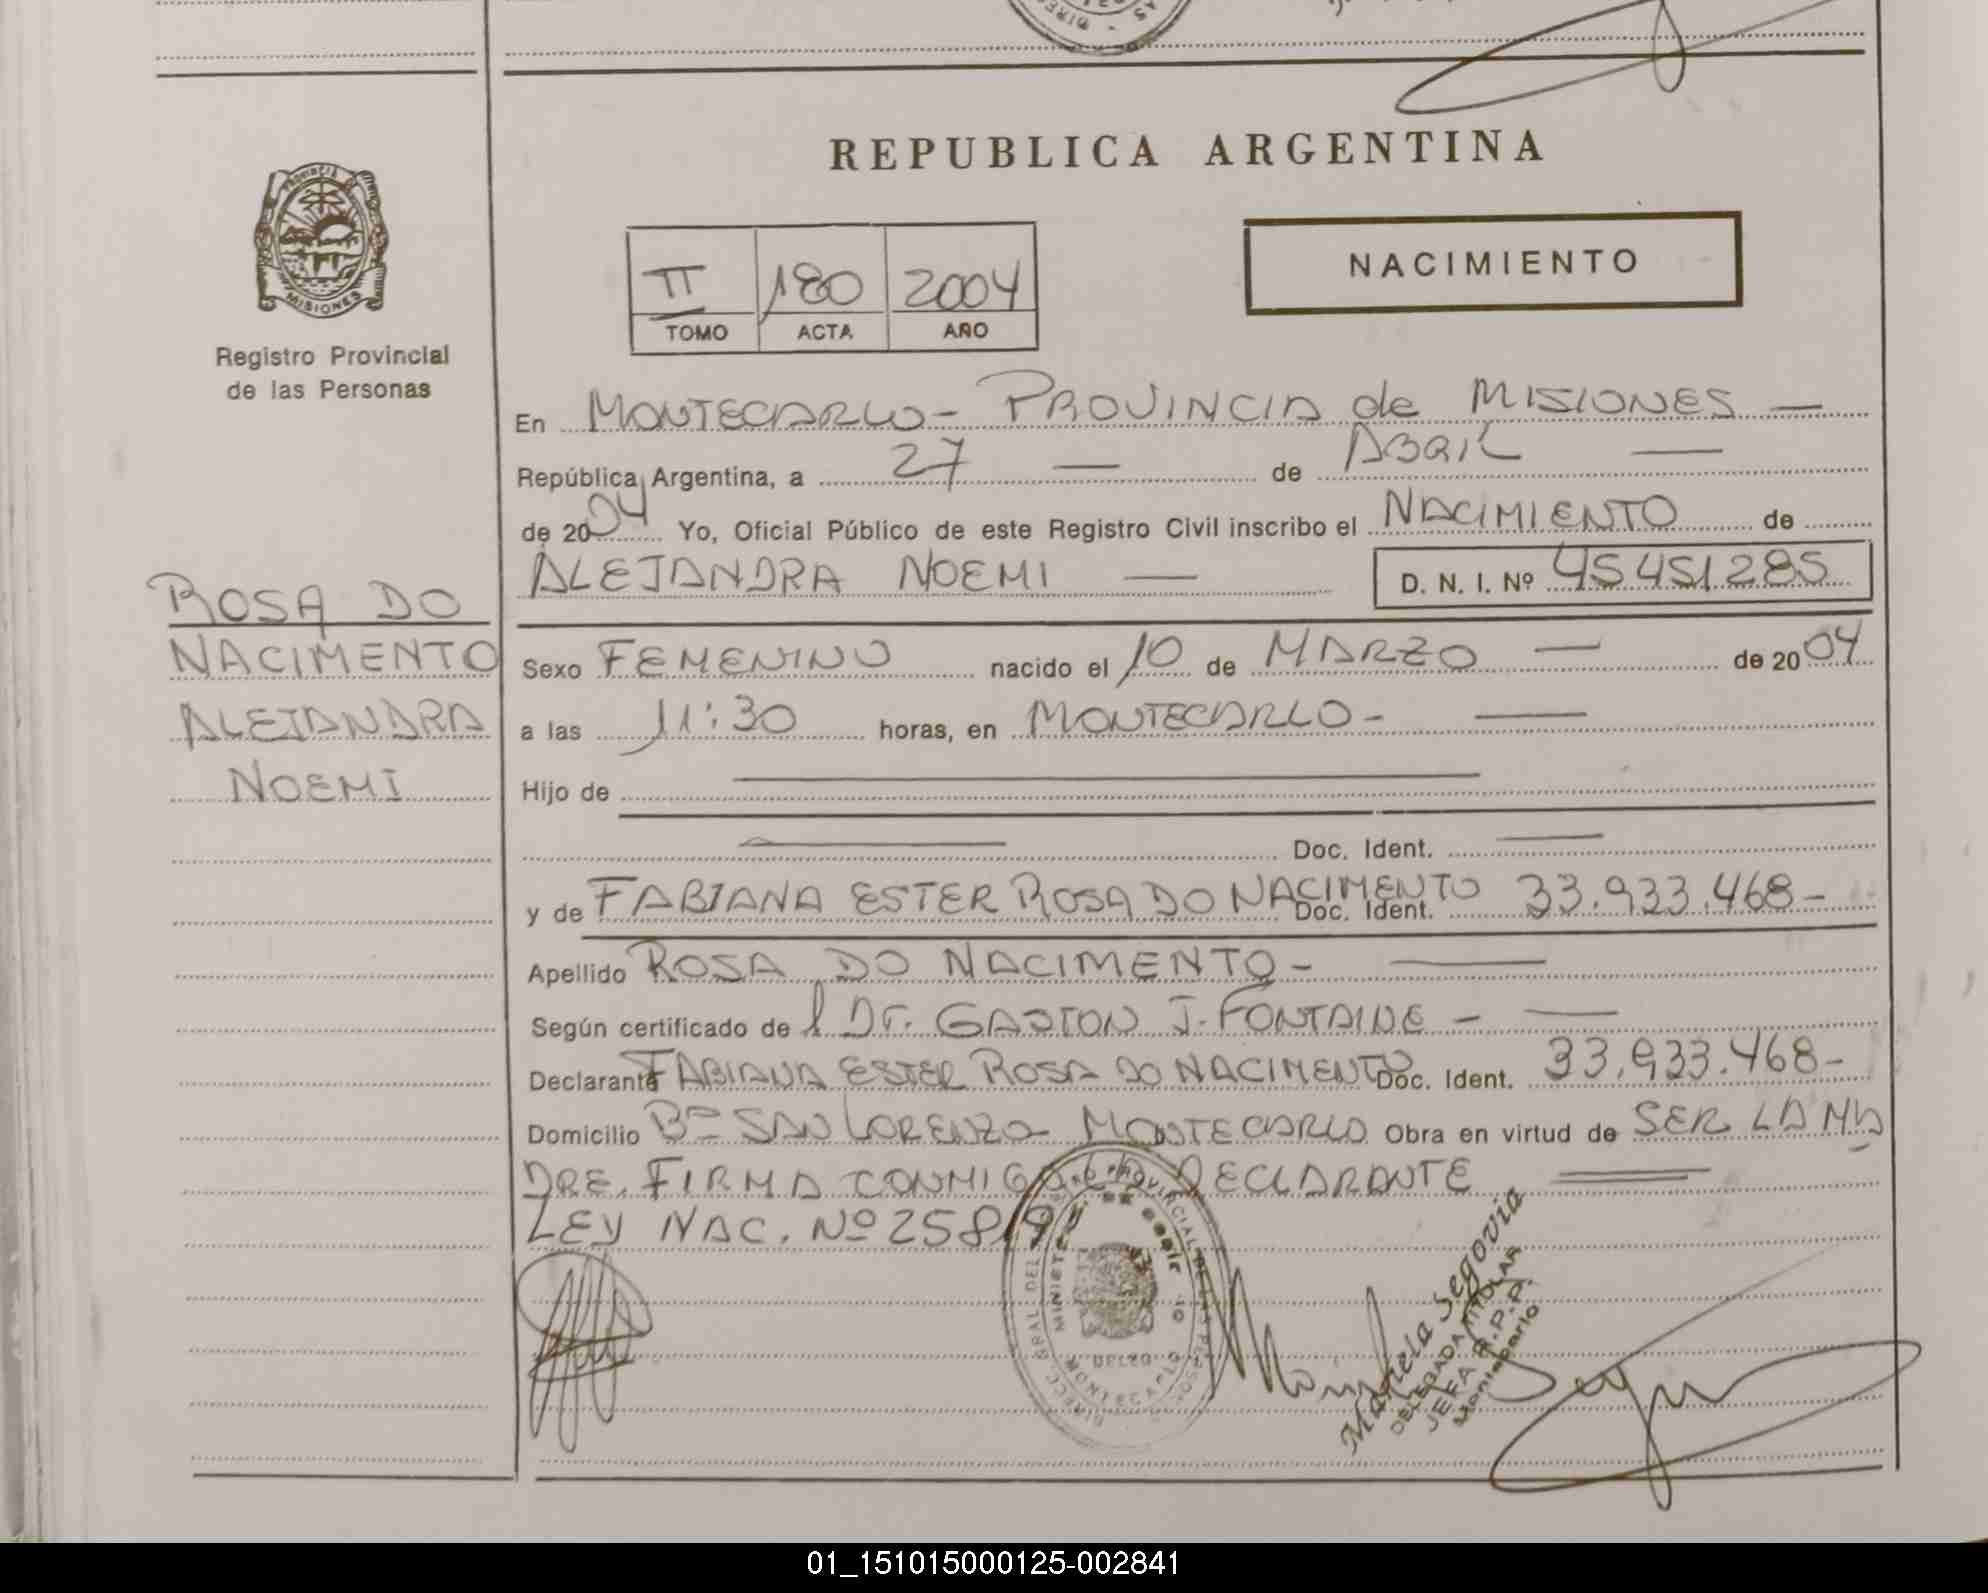 REPUBLICA ARGENTINA
PROVINCIA DE
MISIONES
Registro Provincial
de las Personas
II 180 2004
TOMO ACTA AÑO
NACIMIENTO
En MONTECARLO - PROVINCIA de MISIONES —
República Argentina, a 27 — de ABRIL —
de 2004 Yo, Oficial Público de este Registro Civil inscribo el NACIMIENTO de
ALEJANDRA NOEMI — D. N. I. Nº 45451285
ROSA DO
NACIMENTO
ALEJANDRA
NOEMI
Sexo FEMENINO nacido el 10 de MARZO — de 2004
a las 11:30 horas, en MONTECARLO - —
Hijo de —
— Doc. Ident. —
y de FABIANA ESTER ROSA DO NACIMENTO Doc. Ident. 33.933.468-
Apellido ROSA DO NACIMENTO - —
Según certificado de l Dr. GASTON J. FONTAINE - —
Declarante FABIANA ESTER ROSA DO NACIMENTO Doc. Ident. 33.933.468-
Domicilio Bº SAN LORENZO MONTECARLO Obra en virtud de SER LA MA
DRE. FIRMA CONMIGO LA DECLARANTE
LEY NAC. Nº 25819
Mariela Segovia
DELEGADA TITULAR
JEFA R.P.P.
Montecarlo
01_151015000125-002841